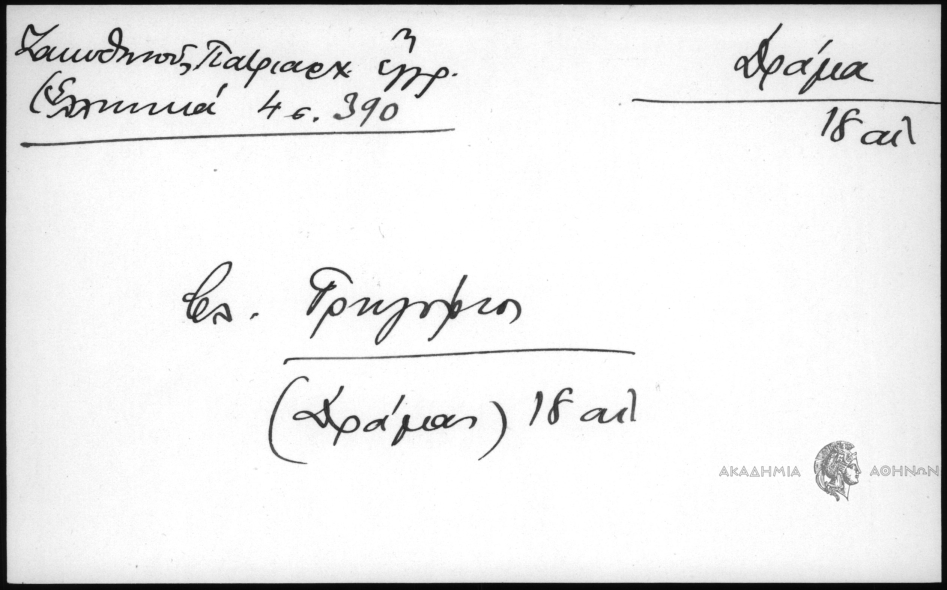 Ζακυθηνοῦ, Πατριαρχ. ἔγγρ.
(Ἑλληνικά 4 σ. 390
Δράμα
18 αἰ.
Βλ. Γρηγόριος
(Δράμας) 18 αἰ.
ΑΚΑΔΗΜΙΑ ΑΘΗΝΩΝ